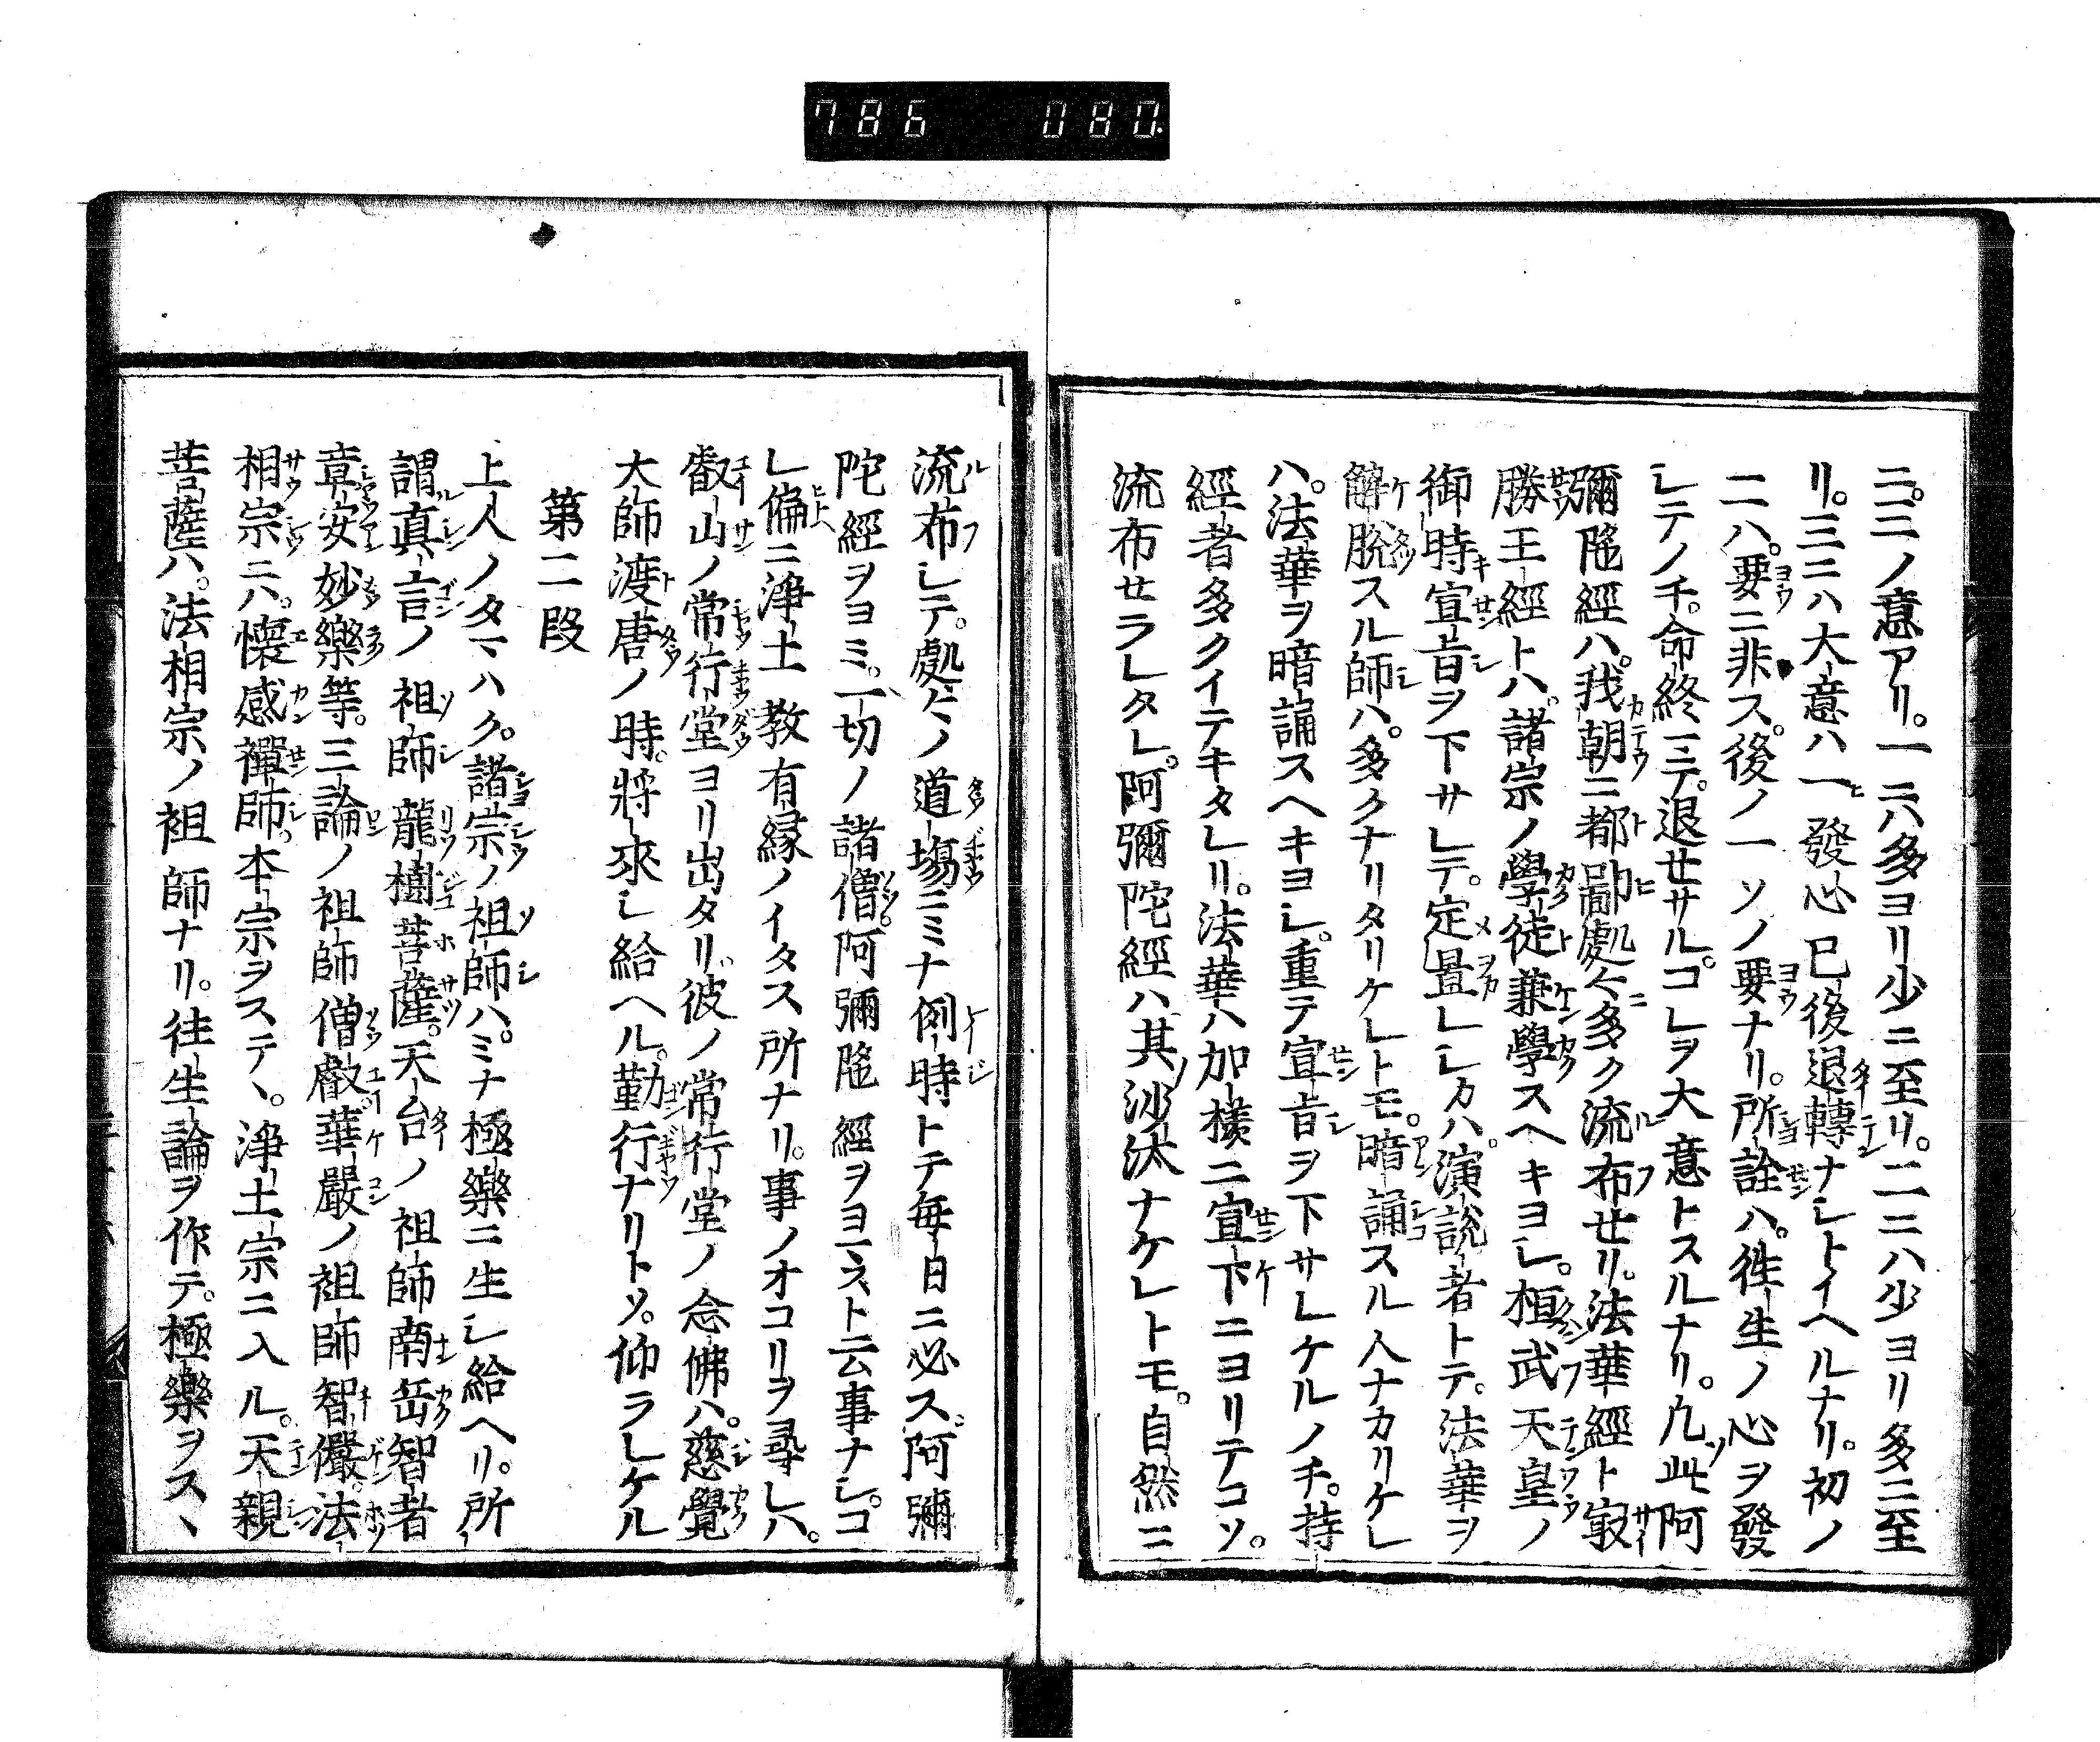 786 080.
ニ。二ノ意アリ。一ニハ多ヨリ少ニ至リ。二ニハ少ヨリ多ニ至
リ。三ニハ大意ハ一發心已後退轉ナシトイヘルナリ。初ノ
二ハ。要ニ非ス。後ノ一ソノ要ナリ。所詮ハ。徃生ノ心ヲ發
シテノチ。命終ニ三テ。退せサル。コレヲ大意トスルナリ。凡此阿
彌陀經ハ。我朝ニ都鄙處々多ク流布せリ。法華經ト㝡
勝王經トハ。諸宗ノ學徒兼學スヘキヨシ。桓武天皇ノ
御時宣旨ヲ下サレテ。定置レシカハ。演說者トテ。法華ヲ
解脫スル師ハ。多クナリタリケレトモ。暗誦スル人ナカリケレ
ハ。法華ヲ暗誦スヘキヨシ。重テ宣旨ヲ下サレケルノチ。持
經者多クイテキタレリ。法華ハ加樣ニ宣下ニヨリテコソ。
流布せラレタレ。阿彌陀經ハ。其沙汰ナケレトモ。自然ニ
流布シテ。處々ノ道場ニミナ例時トテ毎日ニ必ス。阿彌
陀經ヲヨミ。一切ノ諸僧。阿彌陀經ヲヨマスト云事ナシ。コ
レ偏ニ淨土教有縁ノイタス所ナリ。事ノオコリヲ尋レハ。
叡山ノ常行堂ヨリ出タリ。彼ノ常行堂ノ念佛ハ。慈覺
大師渡唐ノ時。將來シ給ヘル。勤行ナリトソ。仰ラレケル
第二段
上人ノタマハク。諸宗ノ祖師ハ。ミナ極樂ニ生シ給ヘリ。所
謂真言ノ祖師龍樹菩薩。天台ノ祖師南岳智者
章安妙樂等。三論ノ祖師僧叡華嚴ノ祖師智儼。法
相宗ニハ。懷感禪師。本宗ヲステヽ。淨土宗ニ入ル。天親
菩薩ハ。法相宗ノ祖師ナリ。往生論ヲ作テ。極樂ヲスヽ